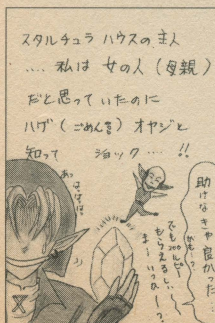 スタルチュラ ハウスの主人
‥‥ 私は 女の人（母親）
だと思っていたのに
ハゲ（ごめん）オヤジと
知って ショック‥‥!!
助けなきゃ良かった
かも…?
でも200ルピー
もらえるしぃ
まーいっかー?
あっ